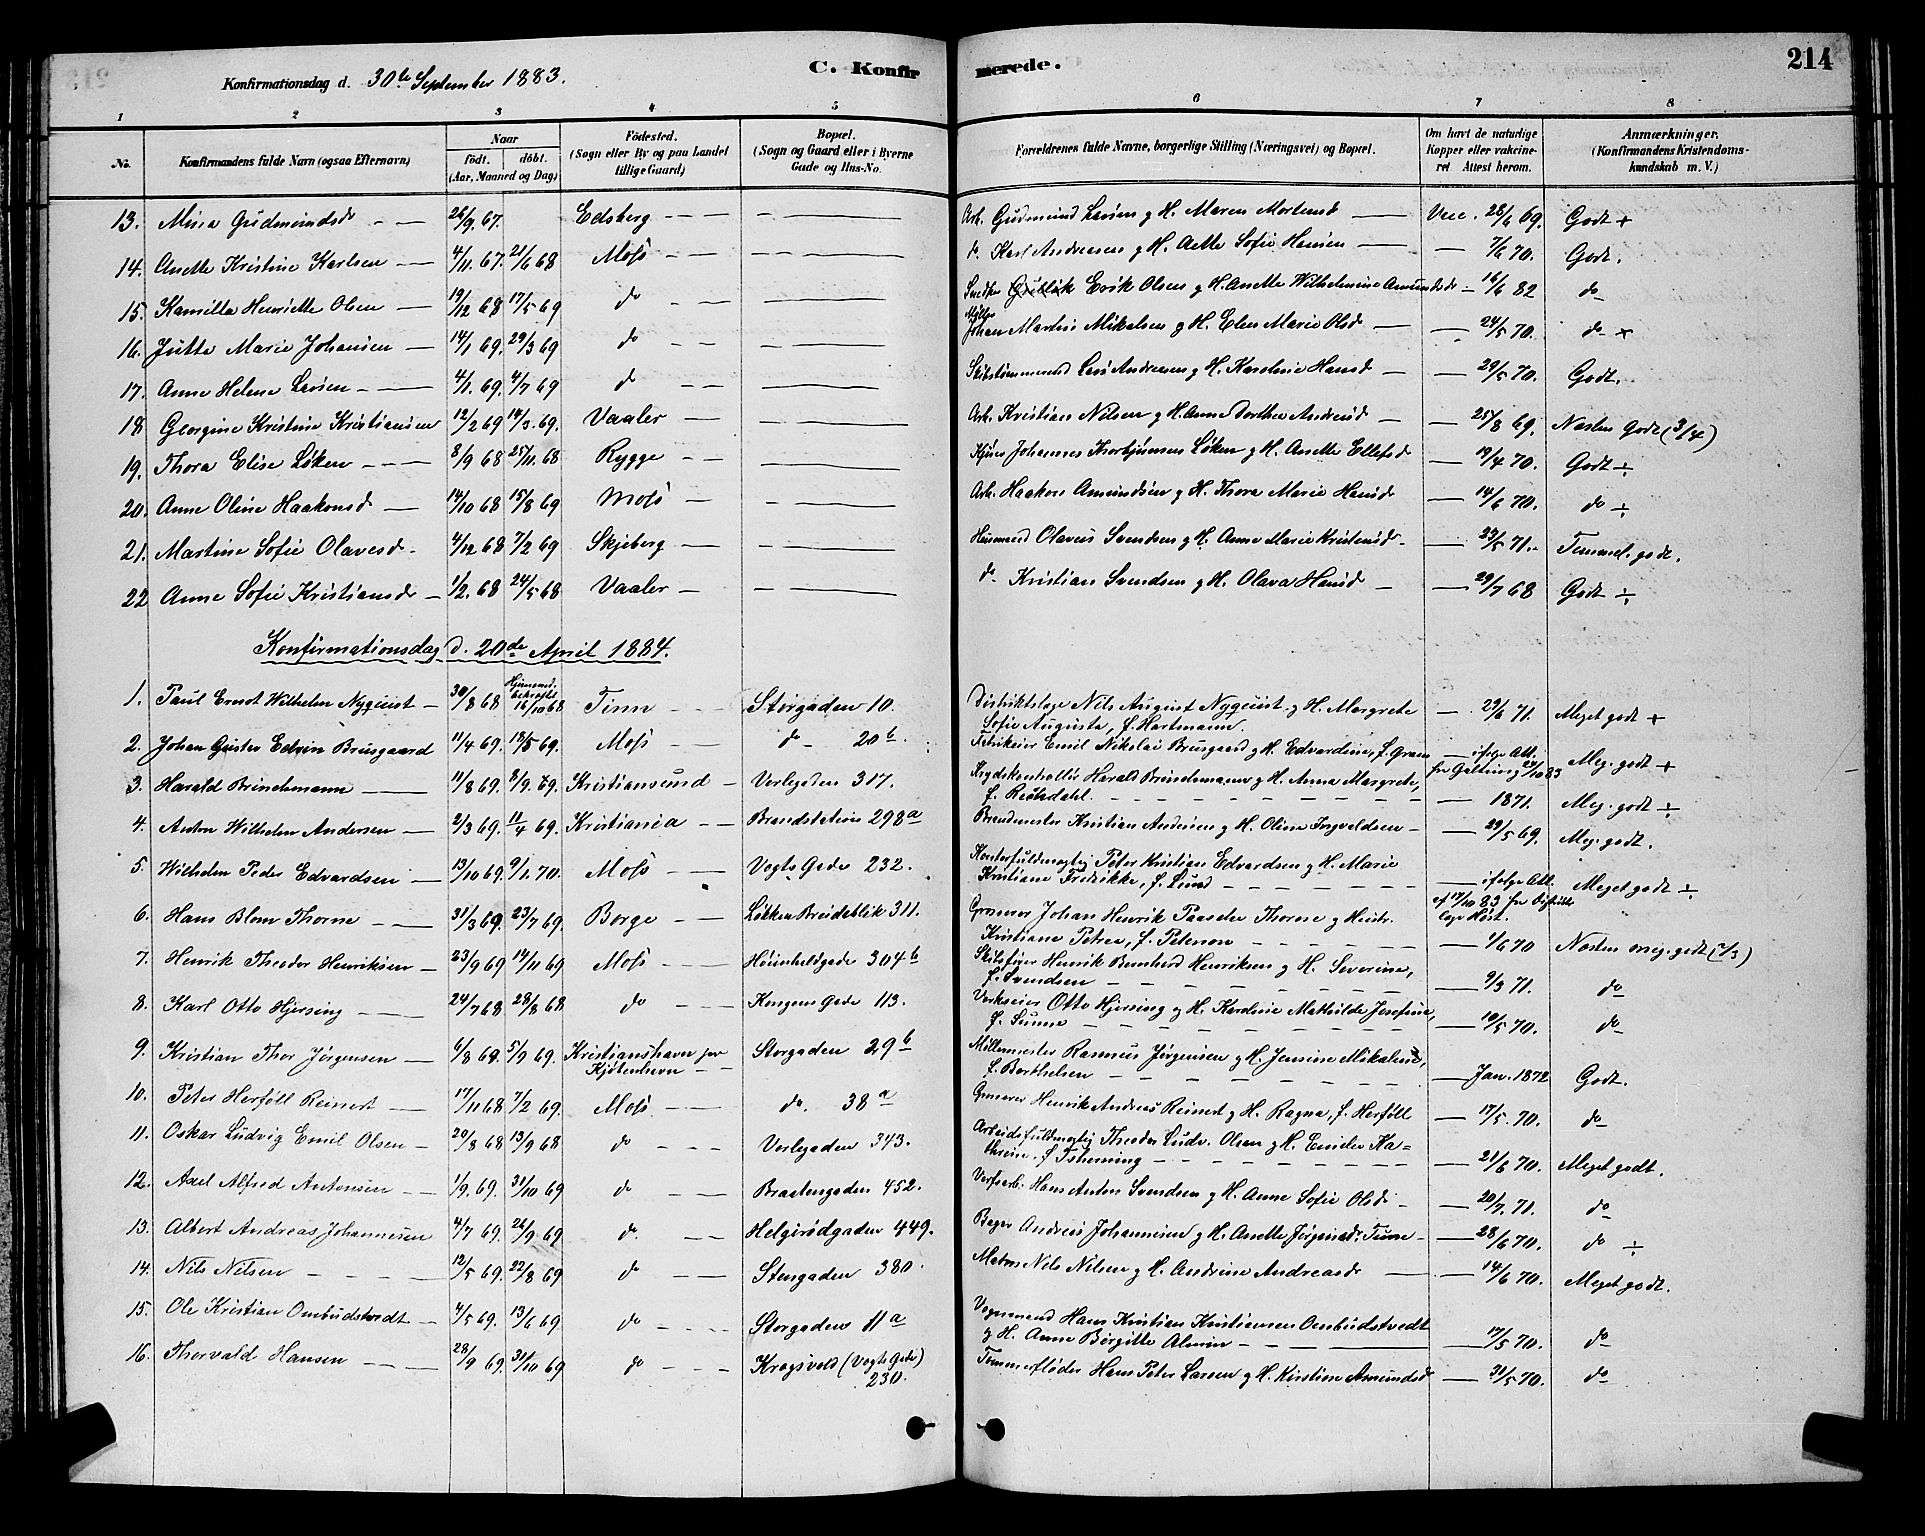 214
Konfirmationsdag d. 30te September 1883. C. Konfirmerede.
1 2 3 4 5 6 7 8
No. Konfirmandens fulde Navn (ogsaa Efternavn) Naar født. døbt. (Aar, Maaned og Dag) Fødested. (Sogn eller By og paa Landet tillige Gaard) Bopæl. (Sogn og Gaard eller i Byerne Gade og Hus-No. Forældrenes fulde Navne, borgerlige Stilling (Næringsvei) og Bopæl. Om havt de naturlige Kopper eller vakcineret Attest herom. Anmærkninger. (Konfirmandens Kristendomskundskab m. V.)
13. Mina Gudmundsdr 26/9 67. Edsberg Arb. Gudmund Larsen g H. Maren Mortensd Vacc. 28/6 69. Godt +
14. Anette Kristine Karlsen 4/11. 67. 21/6 68 Moss do Karl Andreasen g H. Aette Sofie Hansen 7/6 70. Godt.
15. Kamilla Henriette Olsen 19/12 68 17/5 69 do Snedker Erik Olsen g H. Anette Wilhelmine Amundsdr 16/6 82 do
16. Jutta Marie Johansen 14/1 69. 29/3 69 do Johan Martin Mikalsen g H. Elen Marie Olsd 24/5 70. do +
17. Anne Helene Larsen 4/1. 69. 4/7 69 do Skibstømmermd Lars Andreasen g H. Karoline Hansd 29/5 70. Godt.
18 Georgine Kristine Kristiansen 12/2 69 14/3. 69. Vaaler Arb. Kristian Nilsen g H. Anne Dorthea Andersd 25/8 69. Næsten Godt (3/4)
19. Thora Elise Løken 8/9 68 25/11. 68 Rygge Johannes Thorbjørnsen Løken g H. Anette Ellefsd 19/4 70. Godt ÷
20. Anne Oline Haakonsd 14/10 68 15/8 69 Moss Arb. Haakon Amundsen g H. Thora Marie Hansd 14/6 70. do ÷
21. Martine Sofie Olavesdr 4/12 68 7/2 69 Skjeberg Husmand Olavus Svendsen g H. Anne Marie Kristensdr 23/5 71. Temmel. godt.
22 Anne Sofie Kristiansdr 1/2. 68 24/5 68 Vaaler do Kristian Svendsen g H. Olava Hansd 29/7 68 Godt ÷
Konfirmationsdag d. 20de April 1884.
1. Paul Ernst Wilhelm Nyquist 30/8 68 Hjemmed. bekræftet 16/10 68 Tinn Storgaden 10. Distriktslæge Nils August Nyquist g H. Margrete 29/6 71. Meget godt +
Sofie Augusta, f. Hartmann.
2. Johan Gustav Edvin Brusgaard 11/4 69. 18/5 69. Moss do 20 b. Fabrikeier Emil Nikolai Brusgaard g H. Edvardine, f. Gram ifølge Att. Meg. godt +
3. Harald Brinchmann 11/8 69. 8/9. 69. Kristiansund Verlegaden 317. Harald Brinchmann g H. Anna Margrete,
f. 1871. Meg. godt ÷
4. Anton Wilhelm Andersen 2/3 69. 11/4 69. Kristiania Brandstation 298a Brandmester Kristian Andersen g H. Oline Ingvaldsen 29/5 69. Meg. godt.
5. Wilhelm Peder Edvardsen 13/10 69. 9/1. 70. Moss Vogts Gade 232. Kontorfuldmægtig Peter Kristian Edvardsen g H. Marie
Kristiane Fredrikke, f. Lund ifølge Att. Meget godt ÷
6. Hans Blom Thorne 31/3 69. 23/7 69. Borge Løkken Breidablik 311. Grosserer Johan Henrik Paaske Thorne g Hustr. af 17/10 83 fra
Kristiane Petrea, f. Peterson 1/6 70 Næsten meg. godt (2/3)
7. Henrik Theodor Henriksen 23/9 69 14/11 69 Moss Høienholdgade 304b Skibsfører Henrik Bernhard Henriksen g H. Severine,
f. Svendsen 9/3 71. do
8. Karl Otto Hjersing 24/7 68 28/8 68 do Kongens Gade 113. Værkseier Otto Hjersing g H. Karoline Mathilde Josefine,
f. Sunne 10/5 70. do
9. Kristian Thor Jørgensen 6/8 69. 5/9 69. Kristianshavn per Kjøbenhavn Storgaden 29b Møllemester Rasmus Jørgensen g H. Jensine Mikaline,
f. Berthelsen Jan. 1872 Godt.
10. Peter Herføll Reinert 17/11 68 7/2 69. Moss do. 38a Grosserer Henrik Andreas Reinert g H. Ragna, f. Herføll 17/5. 70. do
11. Oskar Ludvig Emil Olsen 20/8 68 13/9 68 do Verlegaden 343. Arbeidsfuldmægtig Theodor Ludv. Olsen g H. Emilie Ka-
thrine, f. Tscherning 21/6 70. Meget godt.
12. Axel Alfred Antonsen 1/9. 69. 31/10 69 do Braatengaden 452. Værfsarb. Hans Anton Svendsen g H. Anne Sofie Olsdr 20/7. 71. do
13. Albert Andreas Johannesen 4/7 69. 26/9 69 do. Helgerødgaden 449. Bager Andreas Johannesen g H. Anette Jørgensdr. Tune 28/6 70. do ÷
14. Nils Nilsen 12/5 69. 22/8 69 do Stengaden 380. Matros Nils Nilsen g H. Andrine Andreasdr 14/6 70. Meget godt.
15. Ole Kristian Ombudstvedt 4/5 69. 13/6 69 do Storgaden 11a Vognmand Hans Kristian Kristiansen Ombudstvedt
g H. Anne Birgitte Almin 17/5 70. do
16. Thorvald Hansen 28/9 69. 31/10 69 do Krogsvold (Vogts Gade) 230. Tømmerfløder Hans Peter Larsen g H. Kirstine Amundsd 31/5 70. do